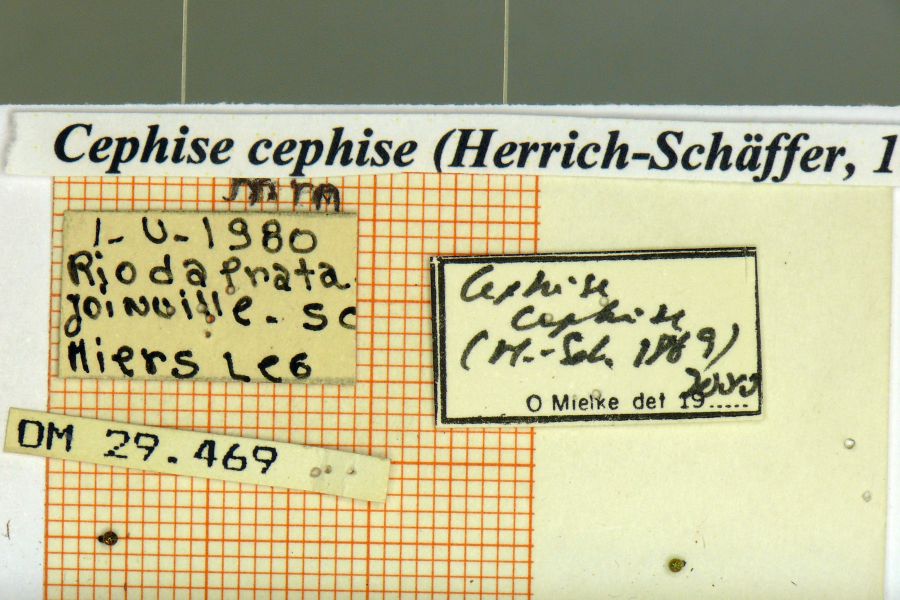 Cephise cephise (Herrich-Schäffer, 1
mm
1-V-1980
Rio da Prata
Joinville - SC
Miers Leg
DM 29.469
Cephise
cephise
(H.-Sch. 1869)
2000
O Mielke det 19.....